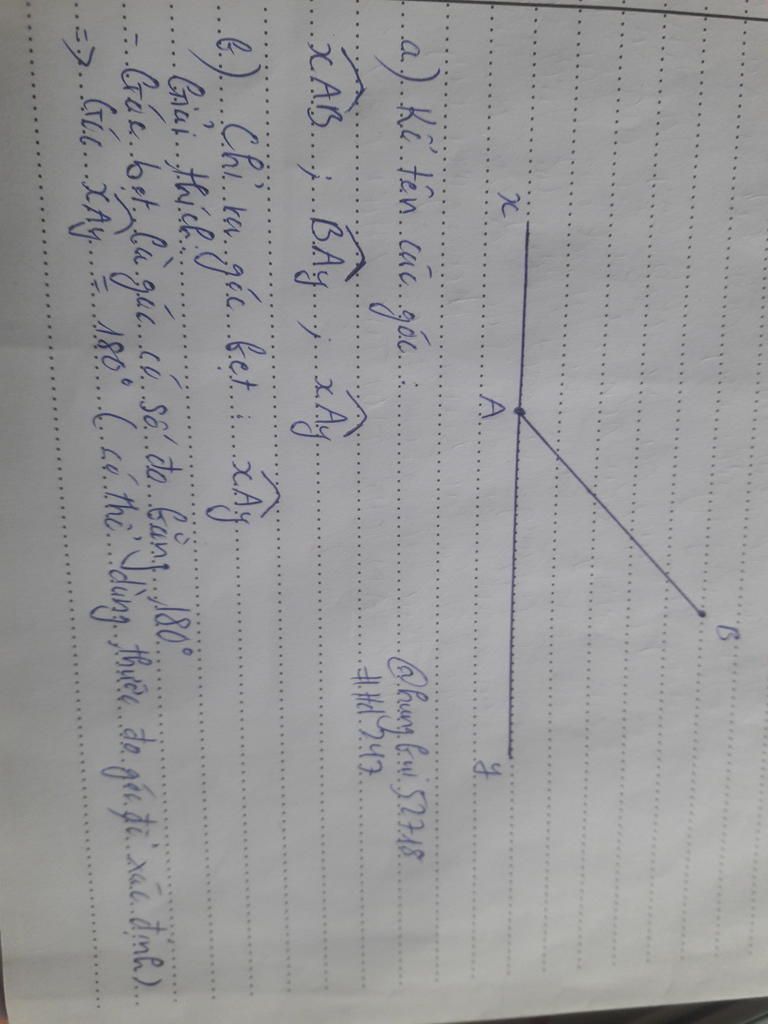 B
x A y
a) Kể tên các góc :
@hungbui52718
#Hd247
xAB ; BAy ; xAy
b) Chỉ ra góc bẹt : xAy
Giải thích:
- Góc bẹt là góc có số đo bằng 180°
=> Góc xAy = 180° ( có thể dùng thước đo góc để xác định)